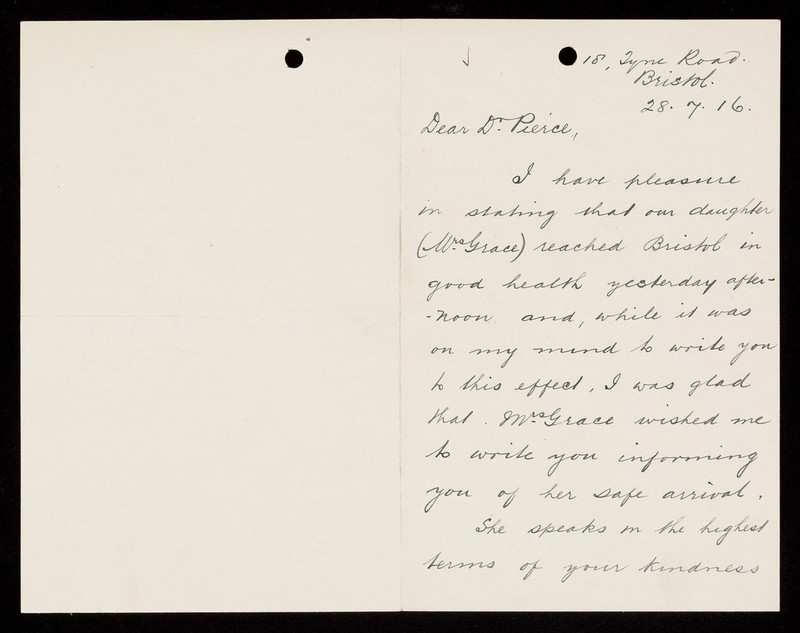 18, Tyne Road.
Bristol.
28. 7. 16.
Dear Dr. Pierce,
I have pleasure
in stating that our daughter
(Mrs. Grace) reached Bristol in
good health yesterday after-
-noon and, while it was
on my mind to write you
to this effect, I was glad
that . Mrs. Grace wished me
to write you informing
you of her safe arrival.
She speaks in the highest
terms of your kindness